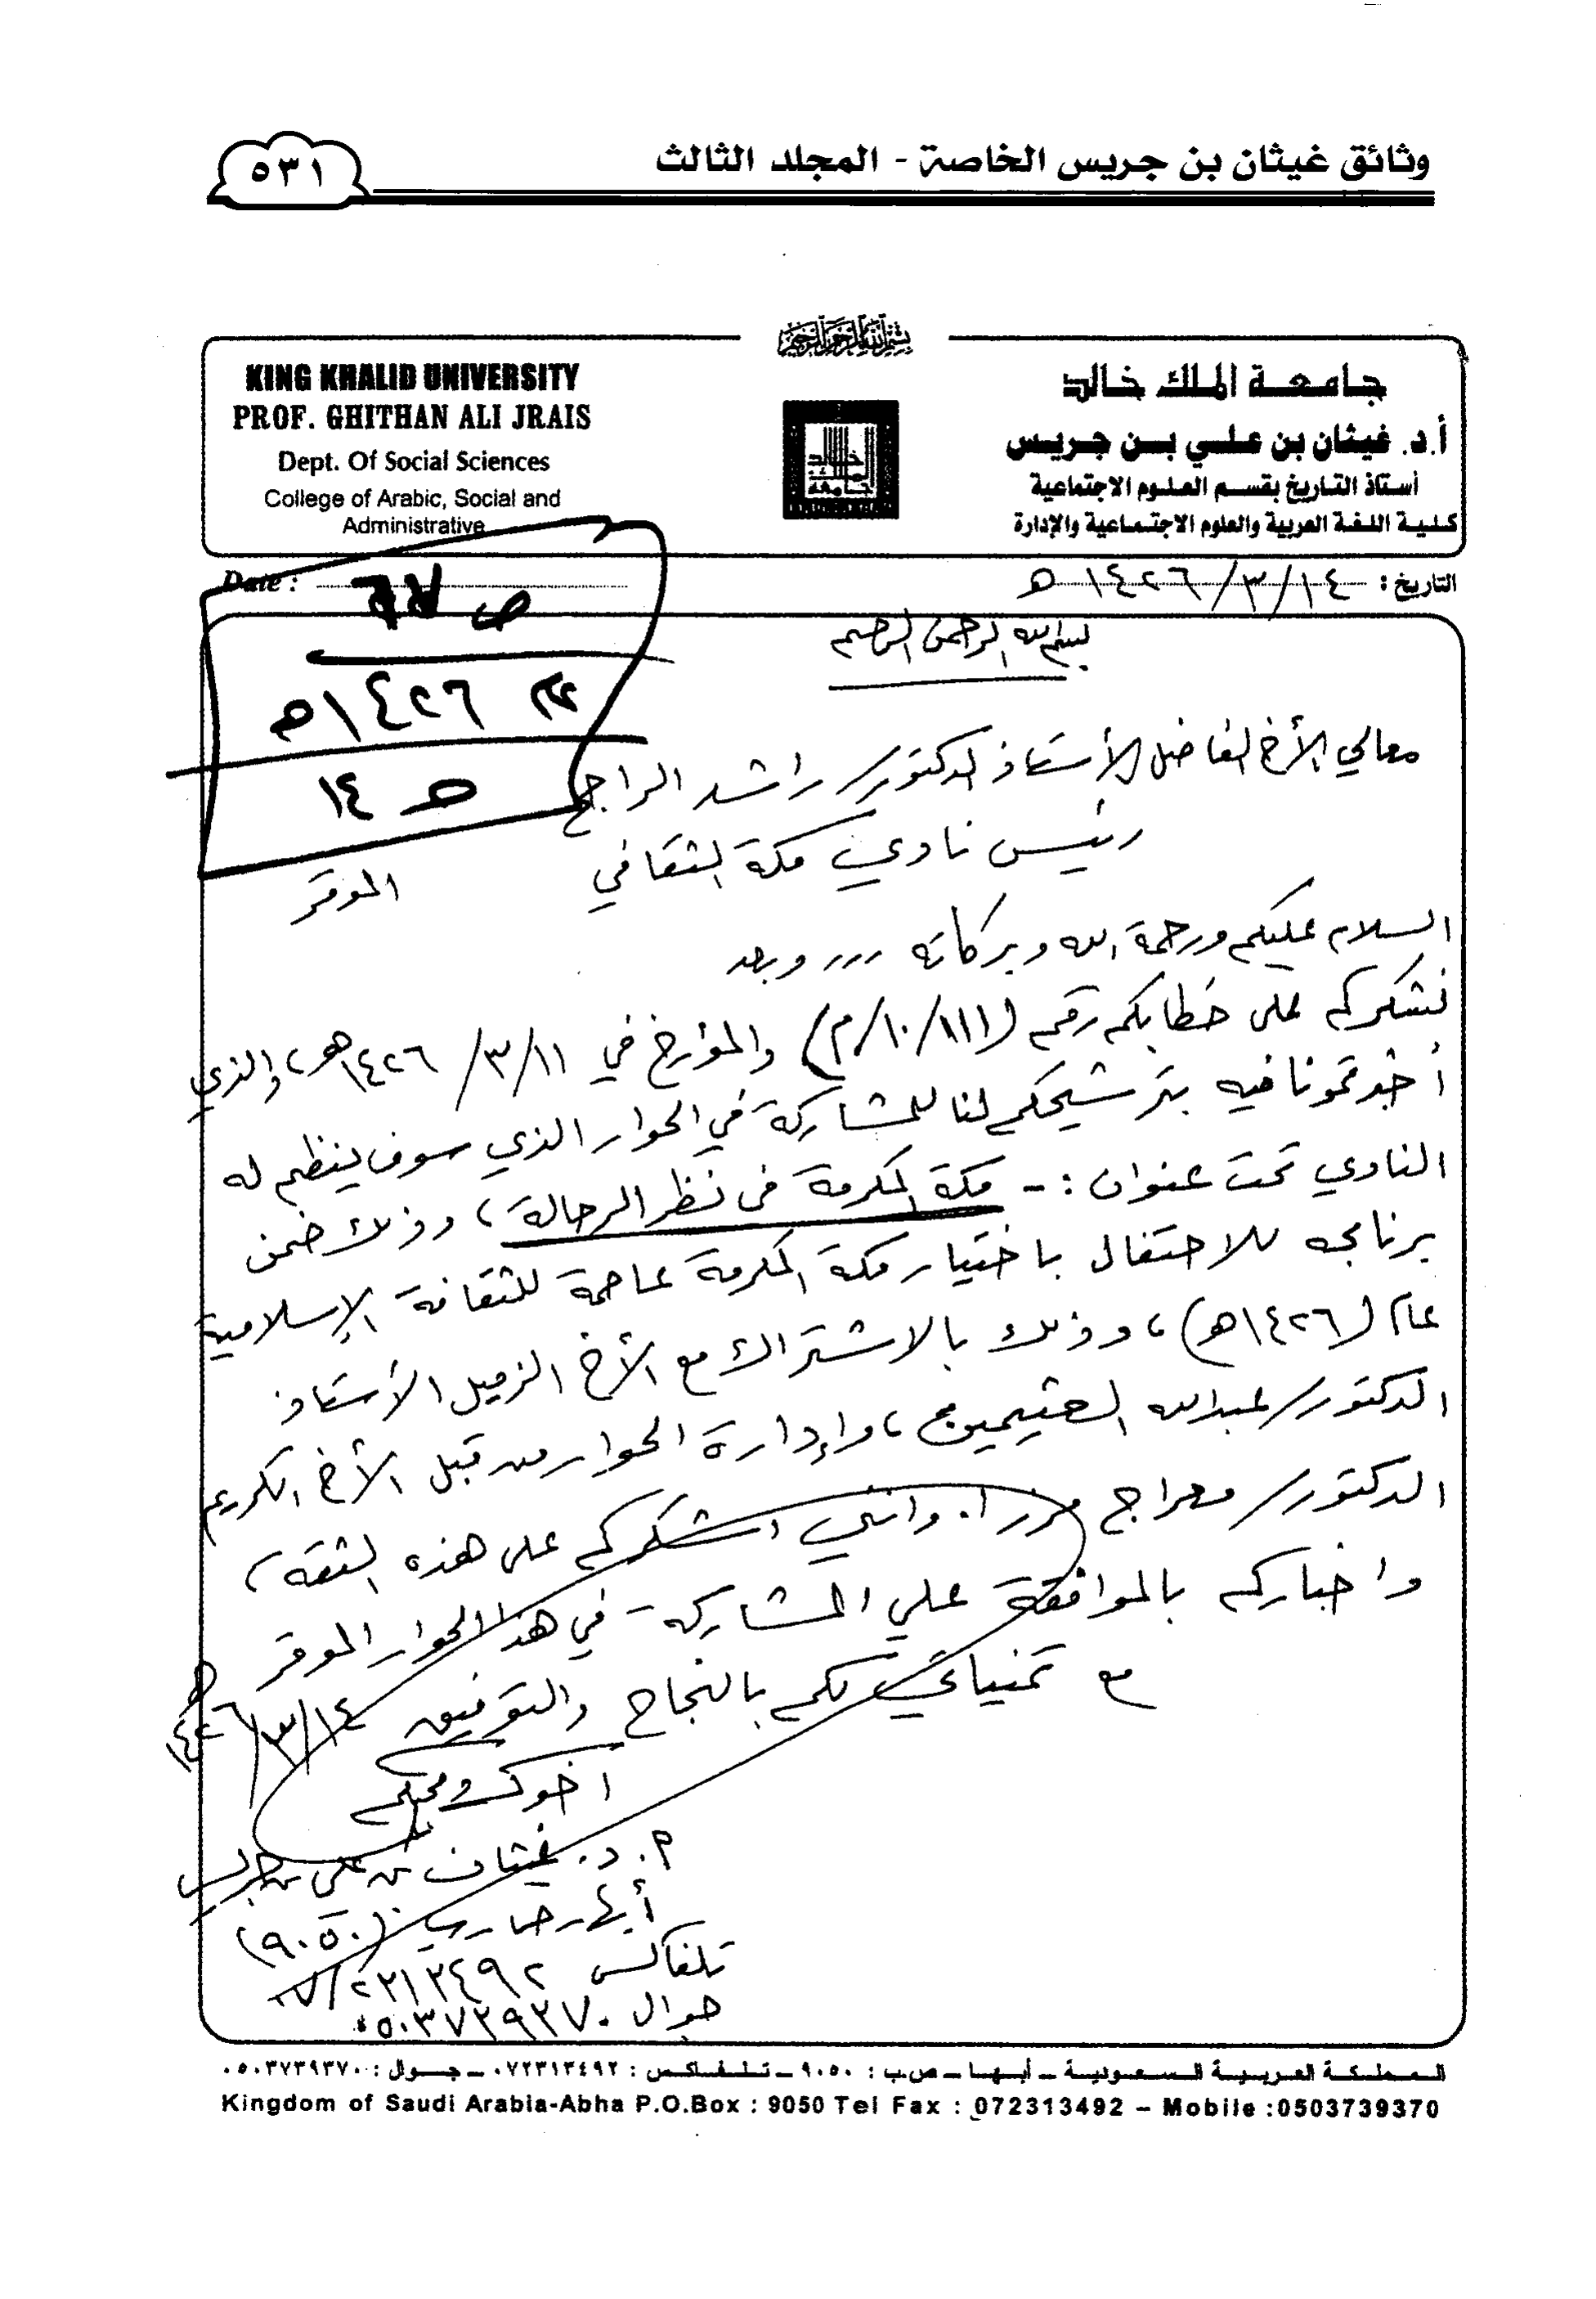 وثائق غيثان بن جريس الخاصة - المجلد الثالث
٥٣١
بسم الله الرحمن الرحيم
KING KHALID UNIVERSITY
PROF. GHITHAN ALI JRAIS
Dept. Of Social Sciences
College of Arabic, Social and
Administrative
جامعة الملك خالد
أ.د. غيثان بن علي بن جريس
أستاذ التاريخ بقسم العلوم الاجتماعية
كلية اللغة العربية والعلوم الاجتماعية والإدارة
التاريخ : ١٤/٣/١٤٢٦ هـ
Date :
ص
١٤٢٦هـ
١٤
بسم الله الرحمن الرحيم
معالي الأخ الفاضل الأستاذ الدكتور/ راشد الراجح
رئيس نادي مكة الثقافي
الموقر
السلام عليكم ورحمة الله وبركاته ,,, وبعد
نشكركم على خطابكم رقم (١١١/١٠/م) والمؤرخ في ١١/٣/١٤٢٦هـ، والذي
أخبرتمونا فيه بترشيحكم لنا للمشاركة في الحوار الذي سوف ينظم له
النادي تحت عنوان :- مكة المكرمة في نظر الرحالة، وذلك ضمن
برنامجه للاحتفال باختيار مكة المكرمة عاصمة للثقافة الإسلامية
عام (١٤٢٦هـ)، وذلك بالاشتراك مع الأخ الزميل الأستاذ
الدكتور/ عبدالله العثيمين، وإدارة الحوار من قبل الأخ الكريم
الدكتور/ معراج مرزا. وانني اشكركم على هذه الثقة،
واخباركم بالموافقة على المشاركة في هذا الحوار الموقر
مع تمنياتي لكم بالنجاح والتوفيق ١٤/٣/١٤٢٦هـ
اخوكم ومحبكم
أ.د. غيثان بن علي بن جريس
أبها ـ ص.ب (٩٠٥٠)
تلفاكس ٢٣١٣٤٩٢/٠٧
جوال ٠٥٠٣٧٣٩٣٧٠
المملكة العربية السعودية ــ أبها ــ ص.ب : ٩٠٥٠ ــ تلفاكس : ٠٧٢٣١٣٤٩٢ ــ جوال : ٠٥٠٣٧٣٩٣٧٠
Kingdom of Saudi Arabia-Abha P.O.Box : 9050 Tel Fax : 072313492 – Mobile :0503739370